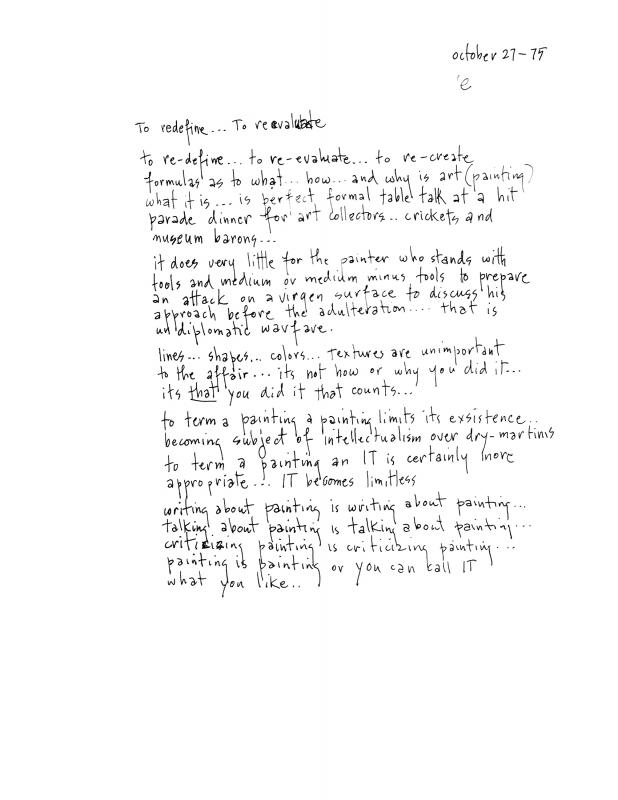 october 27-75
'e
To redefine... To reevaluate
to re-define... to re-evaluate... to re-create
formulas as to what... how... and why is art (painting)
what it is... is perfect formal table talk at a hit
parade dinner for art collectors.. crickets and
museum barons...
it does very little for the painter who stands with
tools and medium or medium minus tools to prepare
an attack on a virgen surface to discuss his
approach before the adulteration.... that is
un diplomatic warfare.
lines... shapes... colors... textures are unimportant
to the affair... its not how or why you did it...
its that you did it that counts...
to term a painting a painting limits its exsistence..
becoming subject of intellectualism over dry-martinis
to term a painting an IT is certainly more
appropriate... IT becomes limitless
writing about painting is writing about painting...
talking about painting is talking about painting...
criticizing painting is criticizing painting...
painting is painting or you can call IT
what you like..